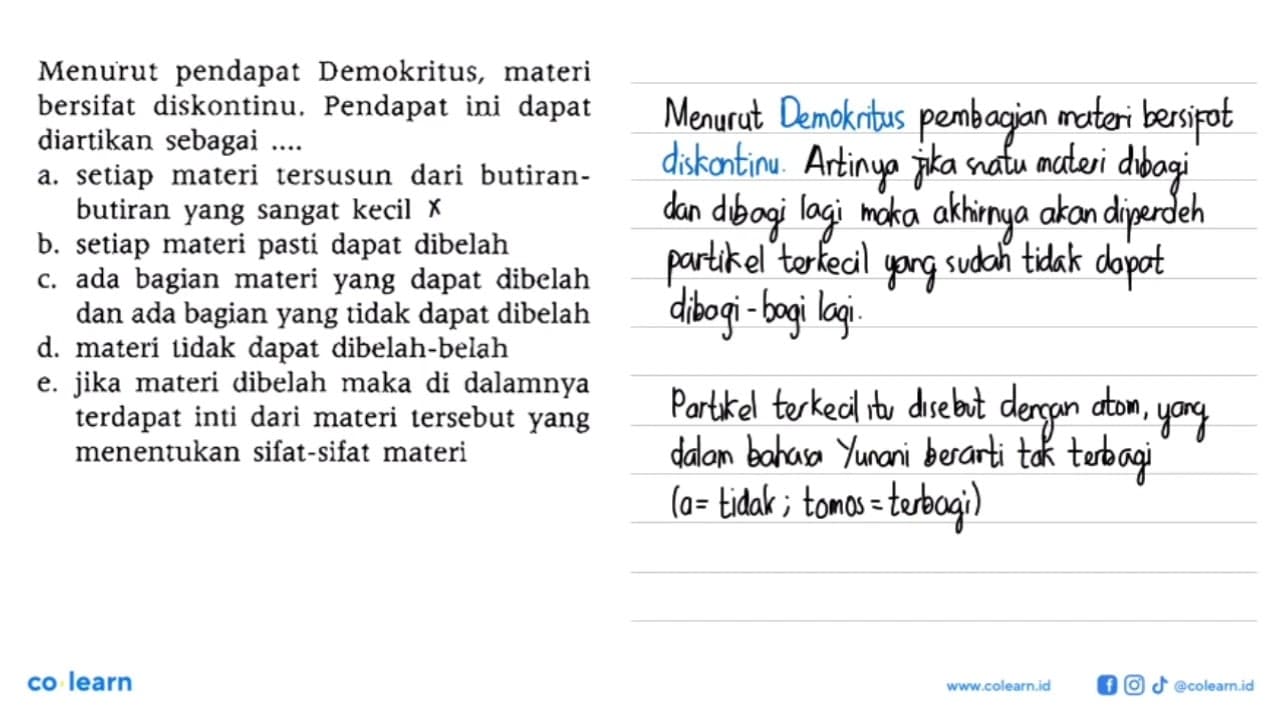 Menurut pendapat Demokritus, materi
bersifat diskontinu. Pendapat ini dapat
diartikan sebagai ....
a. setiap materi tersusun dari butiran-
butiran yang sangat kecil x
b. setiap materi pasti dapat dibelah
c. ada bagian materi yang dapat dibelah
dan ada bagian yang tidak dapat dibelah
d. materi tidak dapat dibelah-belah
e. jika materi dibelah maka di dalamnya
terdapat inti dari materi tersebut yang
menentukan sifat-sifat materi
Menurut Demokritus pembagian materi bersifat
diskontinu. Artinya jika suatu materi dibagi
dan dibagi lagi maka akhirnya akan diperoleh
partikel terkecil yang sudah tidak dapat
dibagi-bagi lagi.
Partikel terkecil itu disebut dengan atom, yang
dalam bahasa Yunani berarti tak terbagi
(a= tidak; tomos = terbagi)
co learn
www.colearn.id
@colearn.id